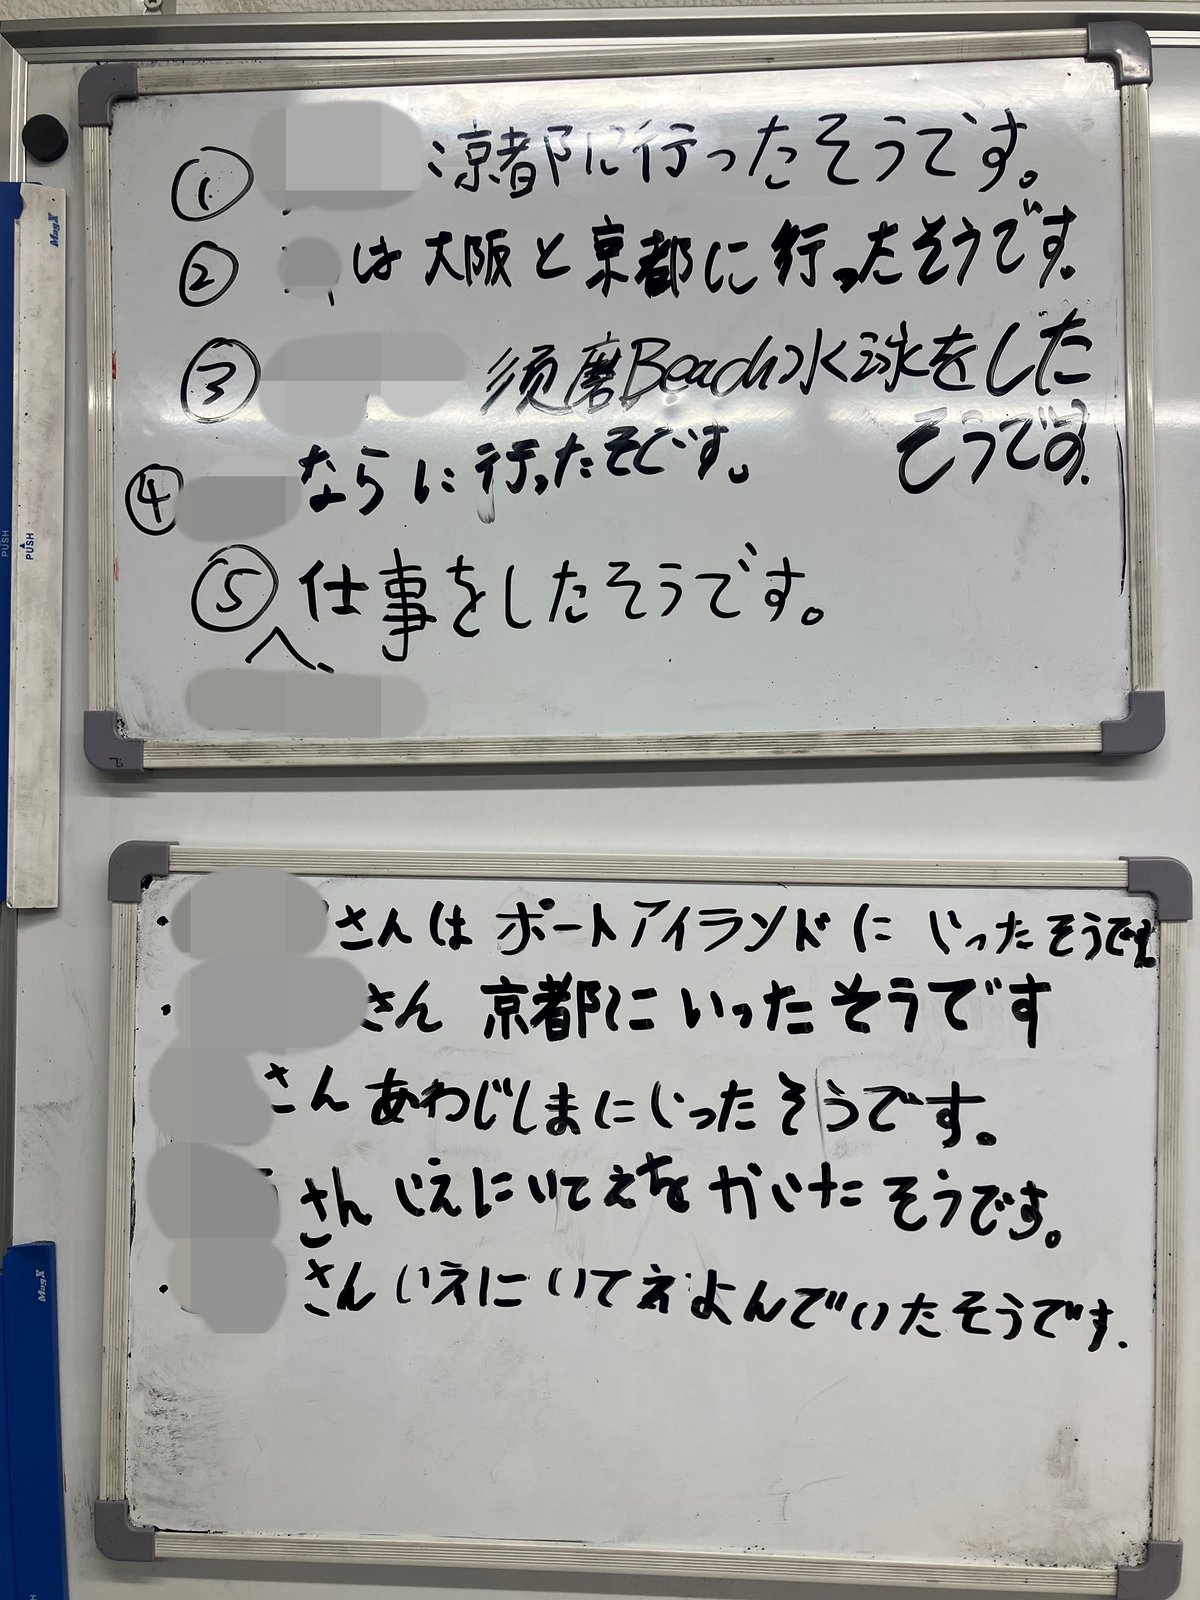 ① 京都に行ったそうです。
② は大阪と京都に行ったそうです。
③ 須磨Beach水泳をした
そうです.
④ ならに行ったそです。
⑤ 仕事をしたそうです。
・ さんは ポートアイランドに いったそうです
・ さん 京都にいったそうです
さん あわじしまにいったそうです。
さん いえにいてえをかいたそうです。
・ さん いえにいてえよんでいたそうです.
MagX
PUSH
PUSH
MagX